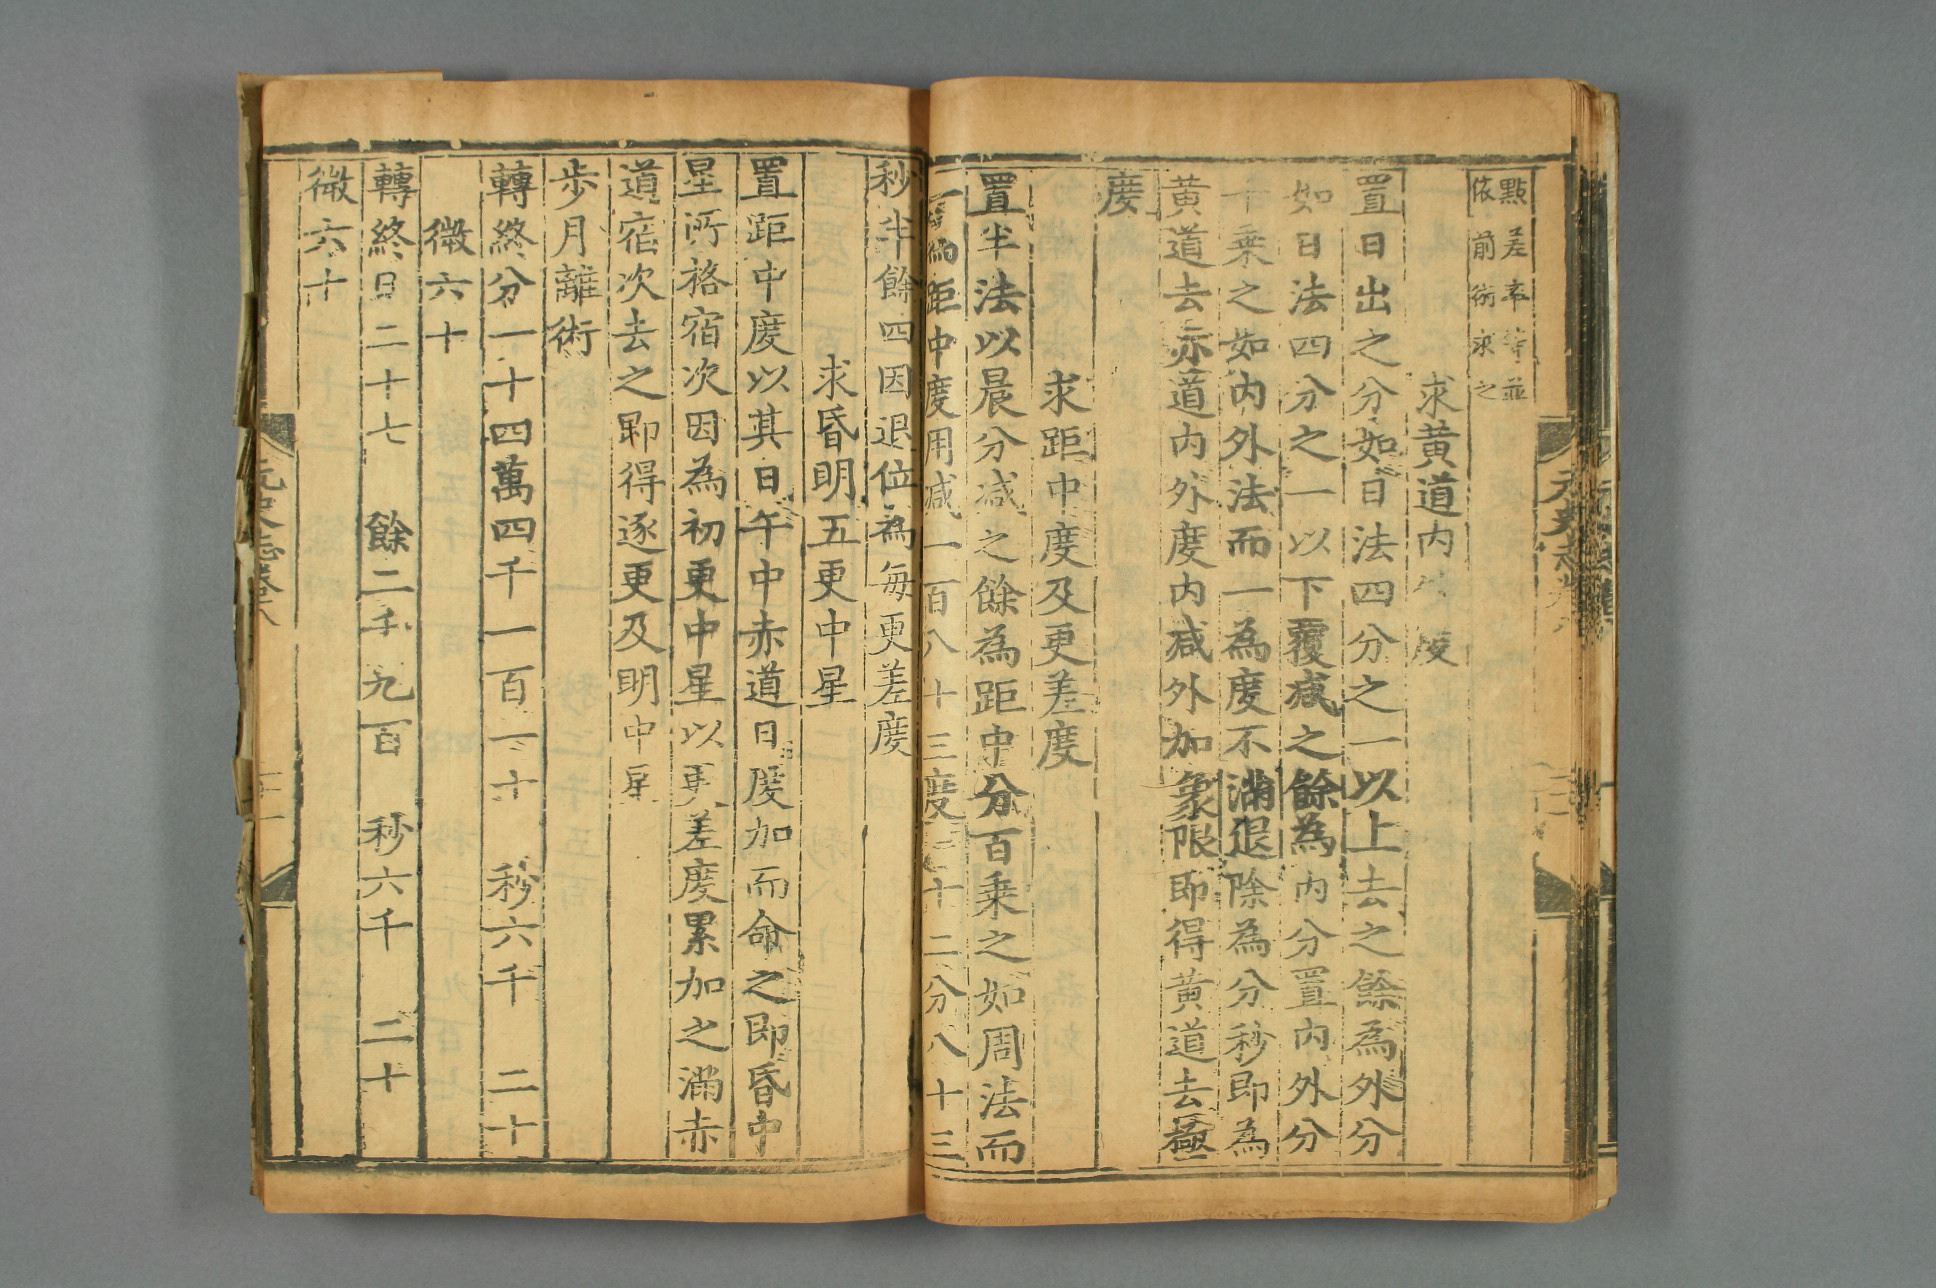 點差率等並
依前術求之
求黃道內外度
置日出之分如日法四分之一以上去之餘為外分
如日法四分之一以下覆减之餘為內分置內外分
千乘之如內外法而一為度不滿退除為分秒即為
黃道去赤道內外度內减外加象限即得黃道去極
度
求距中度及更差度
置半法以晨分减之餘為距中分百乘之如周法而
一為距中度用减一百八十三度一十二分八十三
秒半餘四因退位為每更差度
求昏明五更中星
置距中度以其日午中赤道日度加而命之即昏中
星所格宿次因為初更中星以更差度累加之滿赤
道宿次去之即得逐更及明中星
步月離術
轉終分一十四萬四千一百一十 秒六千 二十
微六十
轉終日二十七 餘二千九百 秒六千 二十
微六十
元史志卷八